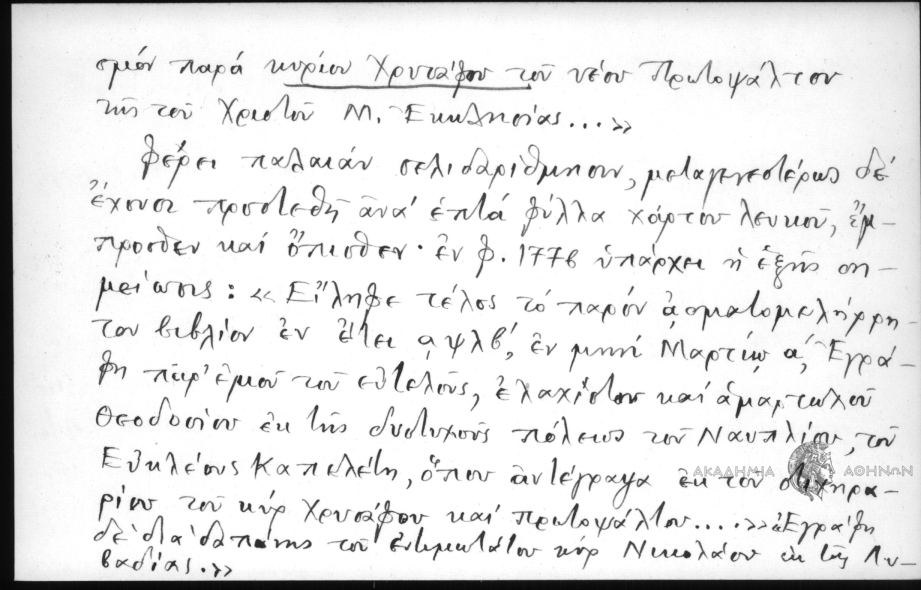 σμόν παρά κυρίου Χρυσάφου τοῦ νέου Πρωτοψάλτου
τῆς τοῦ Χριστοῦ Μ. Ἐκκλησίας...»
φέρει παλαιάν σελιδαρίθμησιν, μεταγενεστέρως δέ
ἔχουσι προστεθῆ ἀνά ἑπτά φύλλα χάρτου λευκοῦ, ἔμ-
προσθεν καί ὄπισθεν· ἐν φ. 177β ὑπάρχει ἡ ἑξῆς ση-
μείωσις: «Εἴληφε τέλος τό παρόν ᾀσματομελήρρη-
τον βιβλίον ἐν ἔτει ͵αψλβ΄, ἐν μηνί Μαρτίῳ α΄, Ἐγρά-
φη παρ' ἐμοῦ τοῦ εὐτελοῦς, ἐλαχίστου καί ἁμαρτωλοῦ
Θεοδοσίου ἐκ τῆς δυστυχοῦς πόλεως τοῦ Ναυπλίου, τοῦ
Εὐκλέους Καπελέτη, ὅπου ἀντέγραψα ἐκ τοῦ στιχηρα-
ρίου τοῦ κύρ Χρυσάφου καί πρωτοψάλτου....» «Ἐγράφη
δέ διά δαπάνης τοῦ ἐντιμωτάτου κύρ Νικολάου ἐκ τῆς Λυ-
βαδίας.»
ΑΚΑΔΗΜΙΑ ΑΘΗΝΩΝ